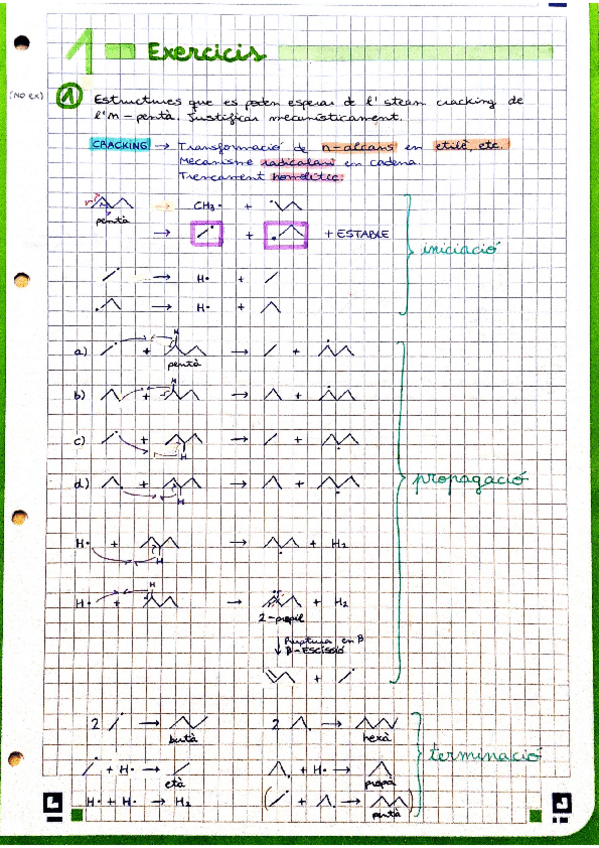 1 Exercicis
(NO EX)
1 Estructures que es poden esperar de l'steam cracking de
l'n-pentà. Justificar mecanísticament.
CRACKING → Transformació de n-alcans en etilè, etc.
Mecanisme radicalari en cadena.
Trencament homolític.
→ CH3• +
pentà
→ + + ESTABLE
iniciació
→ H• +
→ H• +
a) + H → +
pentà
b) + H → +
c) + → +
H
d) + → +
H
propagació
H• + → + H2
H
H
H• + → + H2
2-propil
Ruptura en β
β-ESCISSIÓ
+
2 → 2 →
butà hexà
terminació
+ H• → + H• →
età propà
H• + H• → H2 ( + → )
pentà